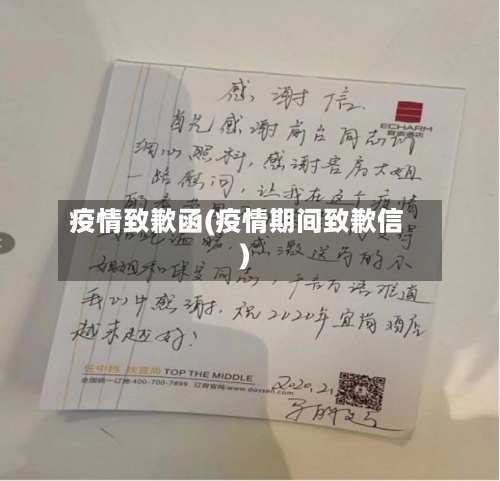 感谢信
ECHARM
宜尚酒店
首先感谢前台同志们
细心照料，感谢客房大姐
一路慰问，让我在这个疫情
疫情致歉函(疫情期间致歉信
)
温暖，感激送药的小
姐姐和保安同志，千言万语难道
我心中感谢，祝2020年宜尚酒店
越来越好！
住中档 找宜尚 TOP THE MIDDLE
全国统一订房:400-700-7899 订房官网:www.dossen.com
2020.2.1